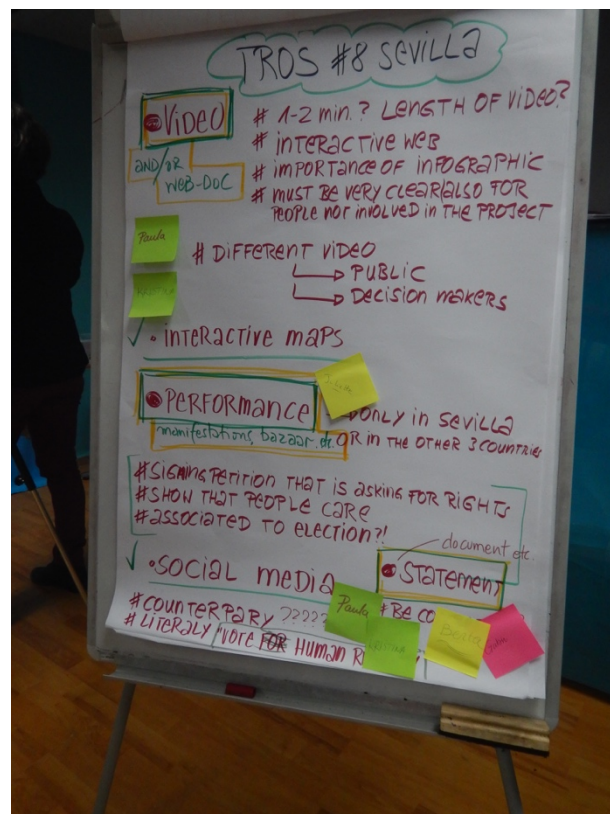 TROS #8 SEVILLA
VIDEO
AND/OR
WEB-DOC
# 1-2 min.? LENGTH OF VIDEO?
# INTERACTIVE WEB
# IMPORTANCE OF INFOGRAPHIC
# MUST BE VERY CLEAR/ALSO FOR
PEOPLE NOT INVOLVED IN THE PROJECT
Paula
# DIFFERENT VIDEO
PUBLIC
DECISION MAKERS
INTERACTIVE MAPS
PERFORMANCE
manifestations, bazaar etc.
ONLY IN SEVILLA
OR IN THE OTHER 3 COUNTRIES
#SIGNING PETITION THAT IS ASKING FOR RIGHTS
#SHOW THAT PEOPLE CARE
#ASSOCIATED TO ELECTION?!
document etc.
SOCIAL MEDIA
STATEMENT
#COUNTERPARY ?????
Paula
#BE
# LITERALY "VOTE FOR HUMAN